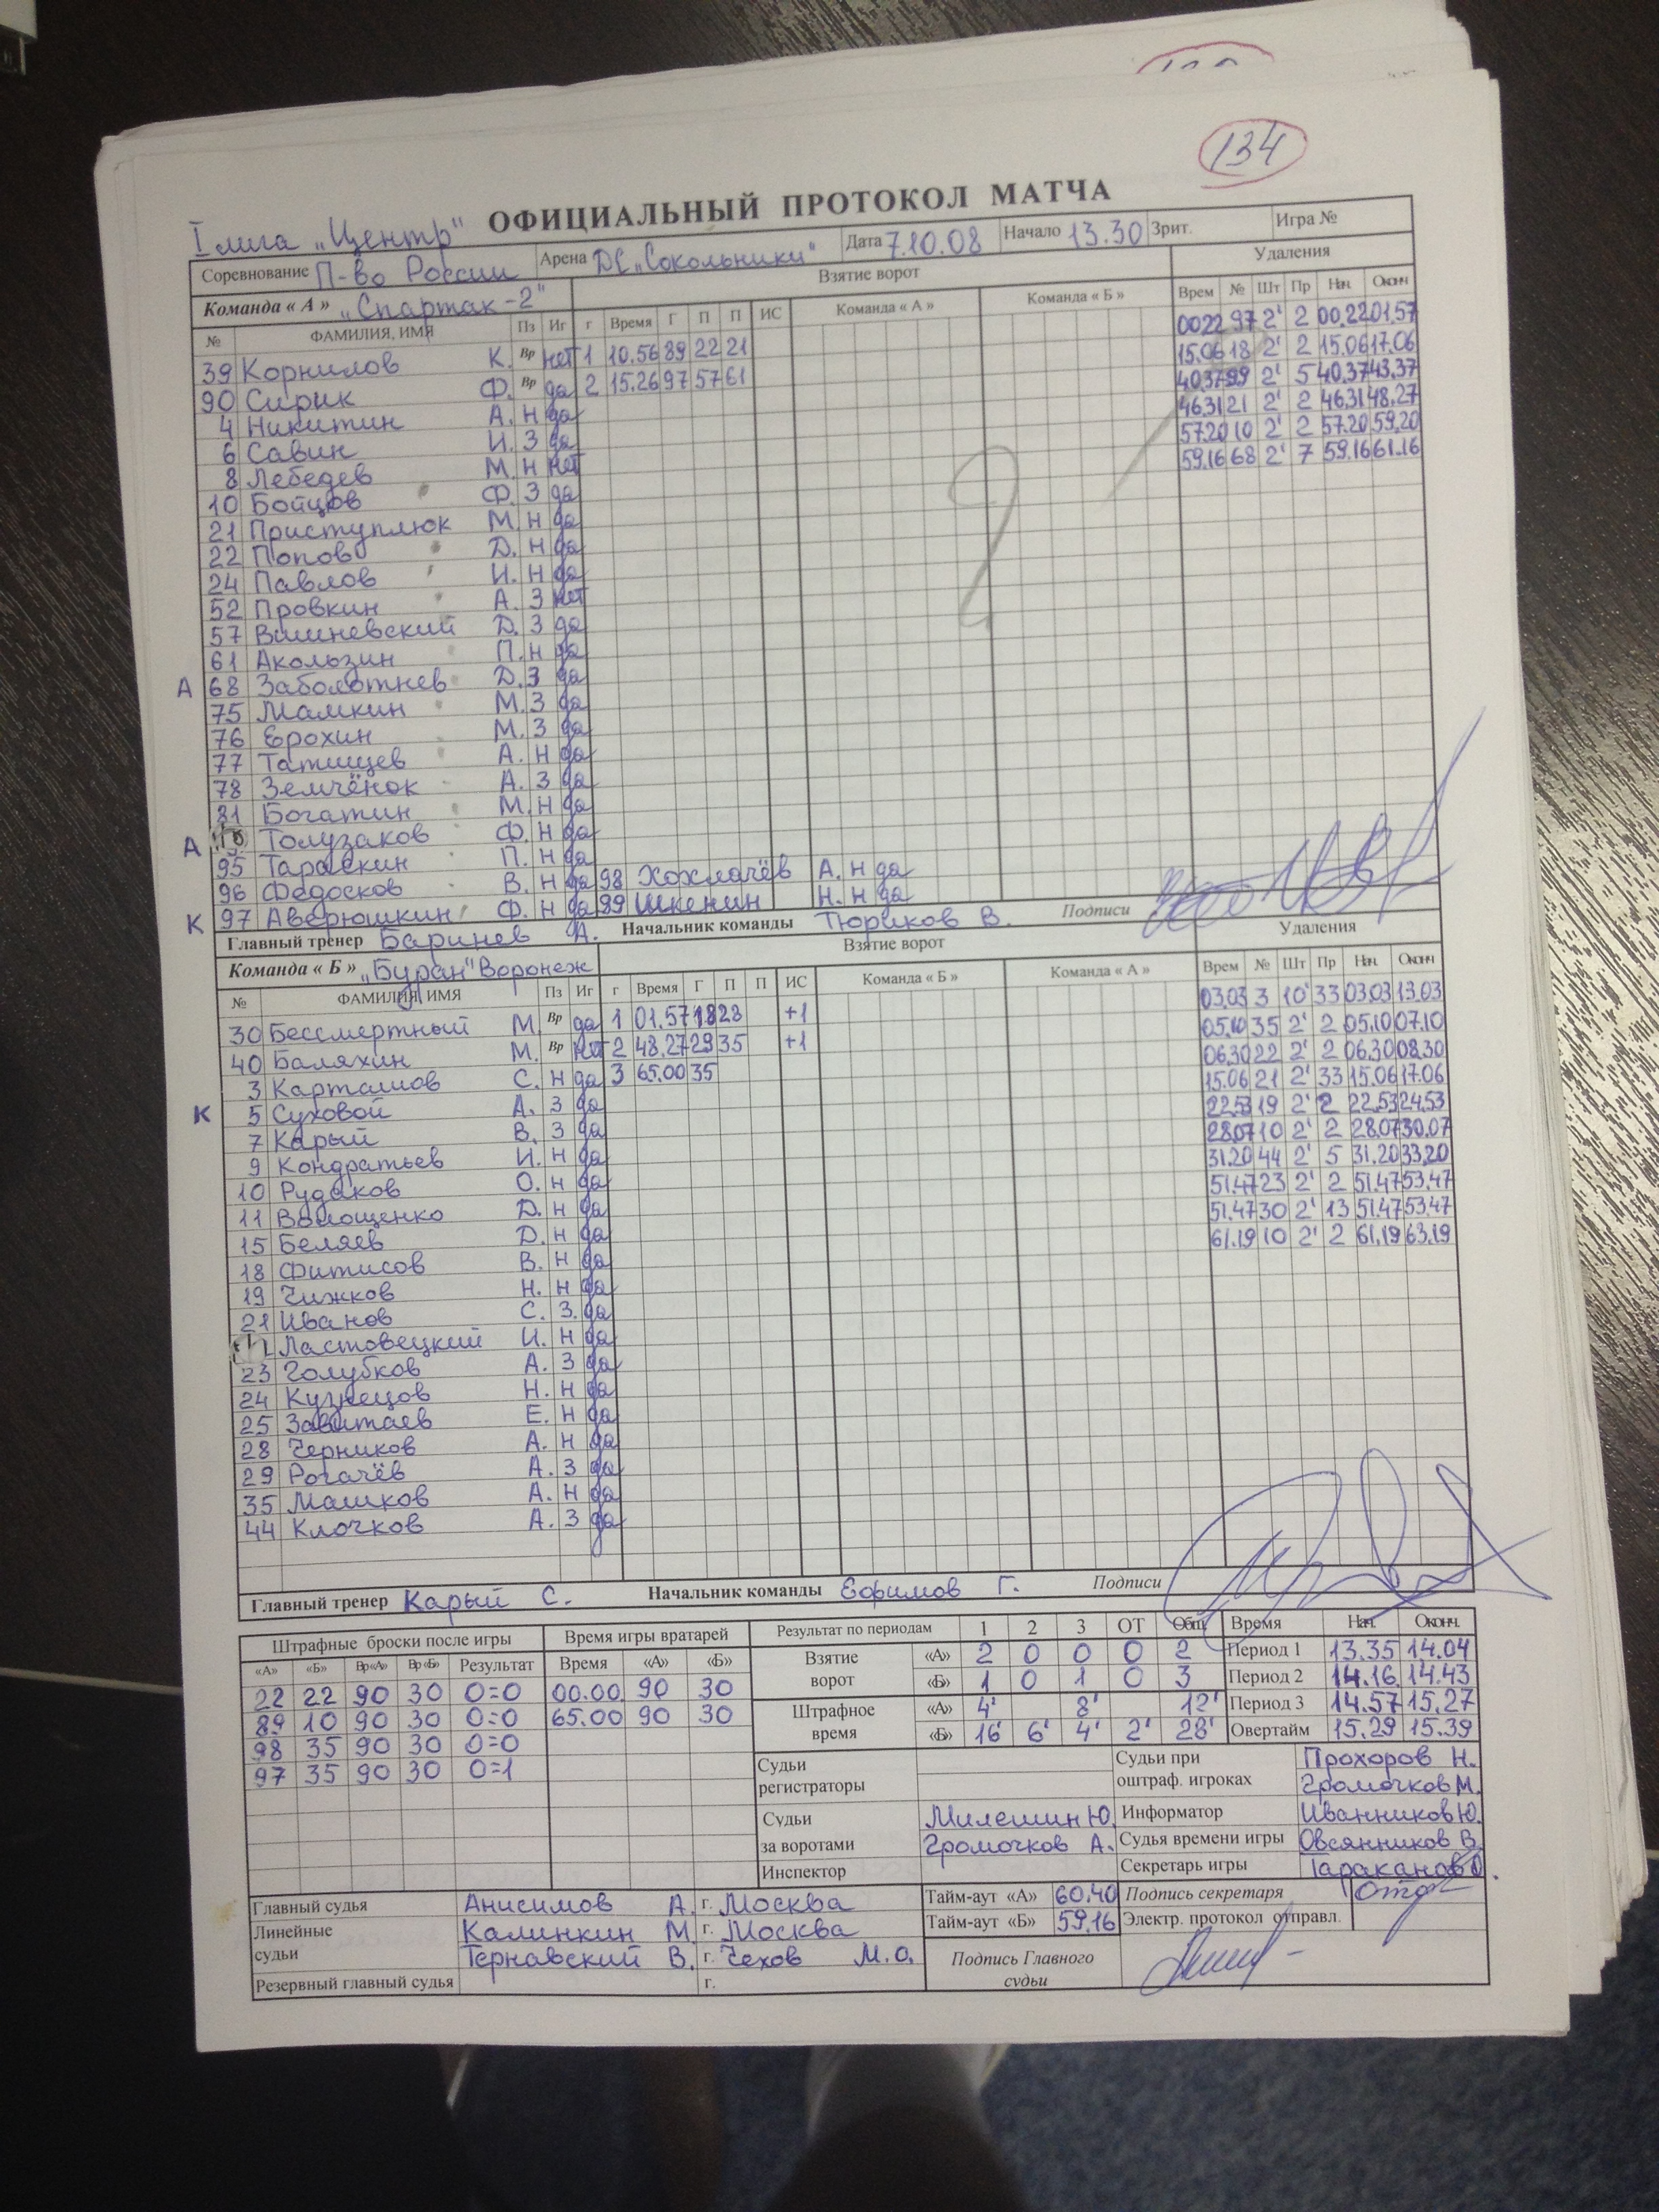 134
ОФИЦИАЛЬНЫЙ ПРОТОКОЛ МАТЧА
I лига „Центр"
Соревнование П-во России Арена ДС „Сокольники" Дата 7.10.08 Начало 13.30 Зрит. Игра №
Команда « А » „Спартак-2" Взятие ворот Удаления
№ ФАМИЛИЯ, ИМЯ Пз Иг г Время Г П П ИС Команда « А » Команда « Б » Врем № Шт Пр Нач. Оконч
39 Корнилов К. Вр нет 1 10.56 89 22 21 00.22 97 2' 2 00.22 01.57
90 Сирик Ф. Вр да 2 15.26 97 57 61 15.06 18 2' 2 15.06 17.06
4 Никитин А. н да 40.37 99 2' 5 40.37 43.37
6 Савин И. З да 46.31 21 2' 2 46.31 48.27
8 Лебедев М. н нет 57.20 10 2' 2 57.20 59.20
10 Бойцов Ф. З да 59.16 68 2' 7 59.16 61.16
21 Приступлюк М. н да
22 Попов Д. н да
24 Павлов И. н да
52 Провкин А. З нет
57 Вишневский Д. З да
61 Акользин П. н да
А 68 Заболотнев Д. З да
75 Мамкин М. З да
76 Ерохин М. З да
77 Татищев А. н да
78 Земчёнок А. З да
81 Богатин М. н да
А Толузаков Ф. н да
95 Тараскин П. н да
96 Федосков В. н да 98 Хохлачёв А. н да
К 97 Аверюшкин Ф. н да 99 Шкенин Н. н да
Главный тренер Баринев А. Начальник команды Тюриков В. Подписи
Команда « Б » „Буран" Воронеж Взятие ворот Удаления
№ ФАМИЛИЯ, ИМЯ Пз Иг г Время Г П П ИС Команда « Б » Команда « А » Врем № Шт Пр Нач. Оконч
30 Бессмертный М. Вр да 1 01.57 18 28 +1 03.03 3 10' 33 03.03 13.03
40 Баляхин М. Вр нет 2 48.27 29 35 +1 05.10 35 2' 2 05.10 07.10
3 Карташов С. н да 3 65.00 35 06.30 22 2' 2 06.30 08.30
К 5 Суховой А. З да 15.06 21 2' 33 15.06 17.06
7 Карый В. З да 22.53 19 2' 2 22.53 24.53
9 Кондратьев И. н да 28.07 10 2' 2 28.07 30.07
10 Рудаков О. н да 31.20 44 2' 5 31.20 33.20
11 Волощенко Д. н да 51.47 23 2' 2 51.47 53.47
15 Беляев Д. н да 51.47 30 2' 13 51.47 53.47
18 Фитисов В. н да 61.19 10 2' 2 61.19 63.19
19 Чижков Н. н да
21 Иванов С. З. да
Ластовецкий И. н да
23 Голубков А. З да
24 Кузнецов Н. н да
25 Завитаев Е. н да
28 Черников А. н да
29 Рогачёв А. З да
35 Машков А. н да
44 Клочков А. З да
Главный тренер Карый С. Начальник команды Ефимов Г. Подписи
Штрафные броски после игры Время игры вратарей Результат по периодам 1 2 3 ОТ Общ. Время Нач. Оконч.
«А» «Б» Вр«А» Вр«Б» Результат Время «А» «Б» Взятие ворот «А» 2 0 0 0 2 Период 1 13.35 14.04
22 22 90 30 0=0 00.00 90 30 «Б» 1 0 1 0 3 Период 2 14.16 14.43
89 10 90 30 0=0 65.00 90 30 Штрафное время «А» 4' 8' 12' Период 3 14.57 15.27
98 35 90 30 0=0 «Б» 16' 6' 4' 2' 28' Овертайм 15.29 15.39
97 35 90 30 0=1 Судьи регистраторы Судьи при оштраф. игроках Прохоров Н.
Громочков М.
Судьи за воротами Милешин Ю. Информатор Иванников Ю.
Громочков А. Судья времени игры Овсянников В.
Инспектор Секретарь игры Тараканов О.
Главный судья Анисимов А. г. Москва Тайм-аут «А» 60.40 Подпись секретаря
Линейные судьи Калинкин М. г. Москва Тайм-аут «Б» 59.16 Электр. протокол отправл.
Тернавский В. г. Чехов М.О. Подпись Главного судьи
Резервный главный судья г.